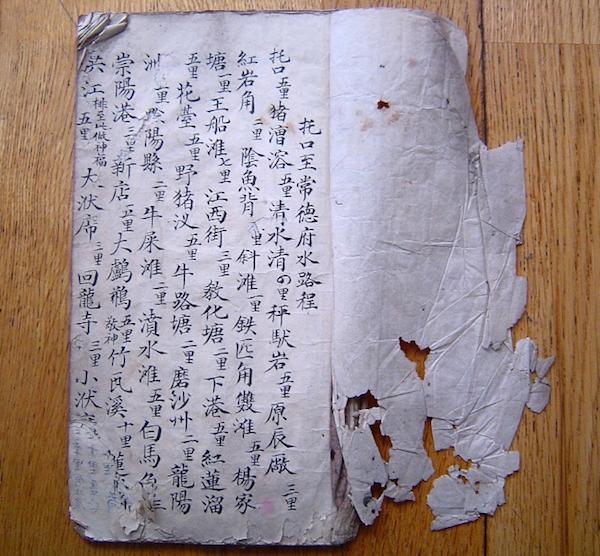 托口至常德府水路程
托口五里猪漕溶五里清水清里秤馱岩五里原辰厰三里
紅岩角二里陰魚背里斜滩一里鉄匹角雙滩五里楊家
塘一里王船滩七里江西街三里教化塘二里下港五里紅蓮溜
五里花堂五里野猪汊五里牛路塘二里磨沙州二里龍陽
洲里陽縣二里牛屎滩二里濆水滩五里白馬
崇陽港三里新店五里大鸕鶿五里敬神竹瓦溪十里
洪江排至此做神福五里大洑三里回龍寺三里小洑